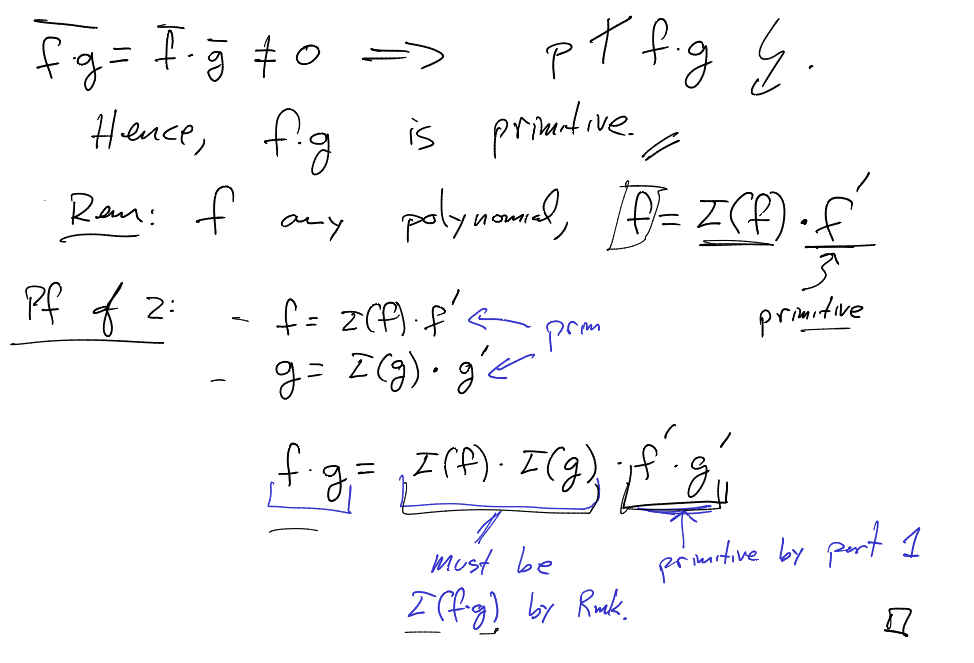 \overline{f·g} = \bar{f}·\bar{g} ≠ 0 ⟹ p ∤ f·g ↯.
Hence, f·g is primitive.
Rem: f any polynomial, f = I(f)·f′
primitive
Pf of 2: - f = I(f)·f′ ← prim
- g = I(g)·g′
f·g = I(f)·I(g)·f′·g′
must be primitive by part 1
I(f·g) by Rmk.
□